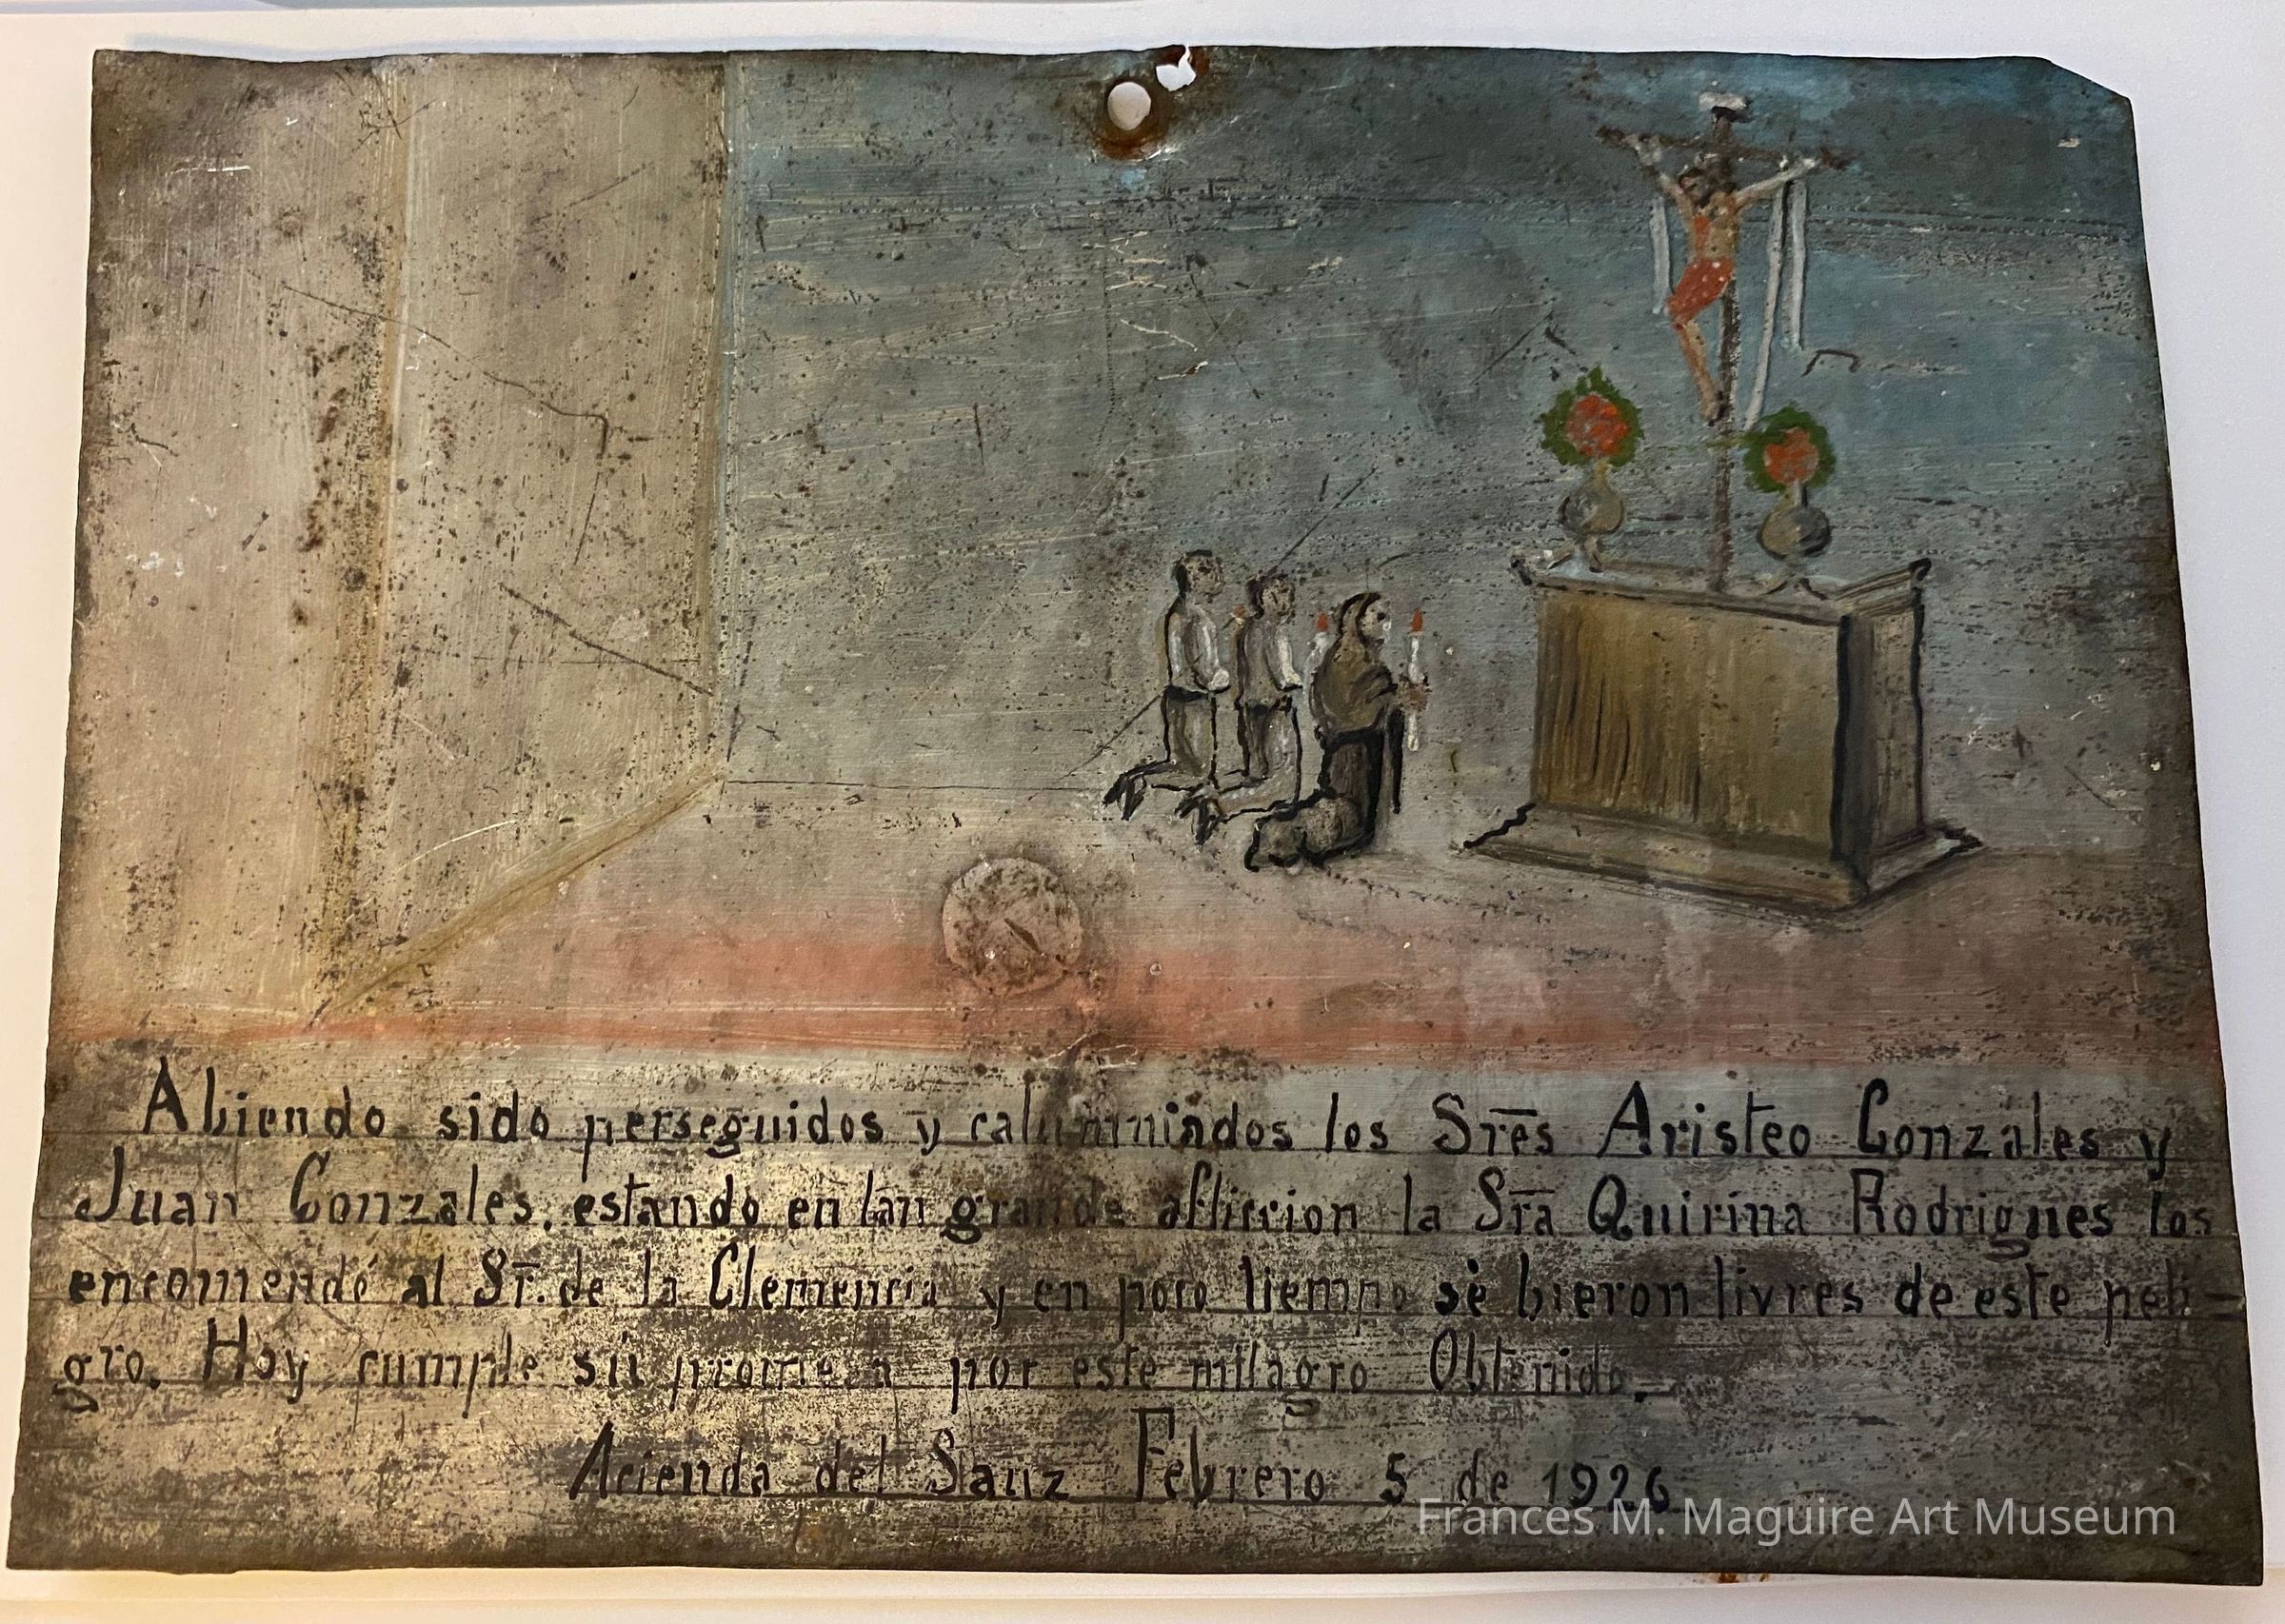 Abiendo sido perseguidos y calumniados los Sres Aristeo Gonzales y
Juan Gonzales. estando en tan grande afliccion la Sra Quirina Rodrigues los
encomendó al Sr. de la Clemencia y en poco tiempo se bieron livres de este peli-
gro. Hoy cumple su promesa por este milagro Obtenido.
Acienda del Sauz Febrero 5 de 1926.
Frances M. Maguire Art Museum